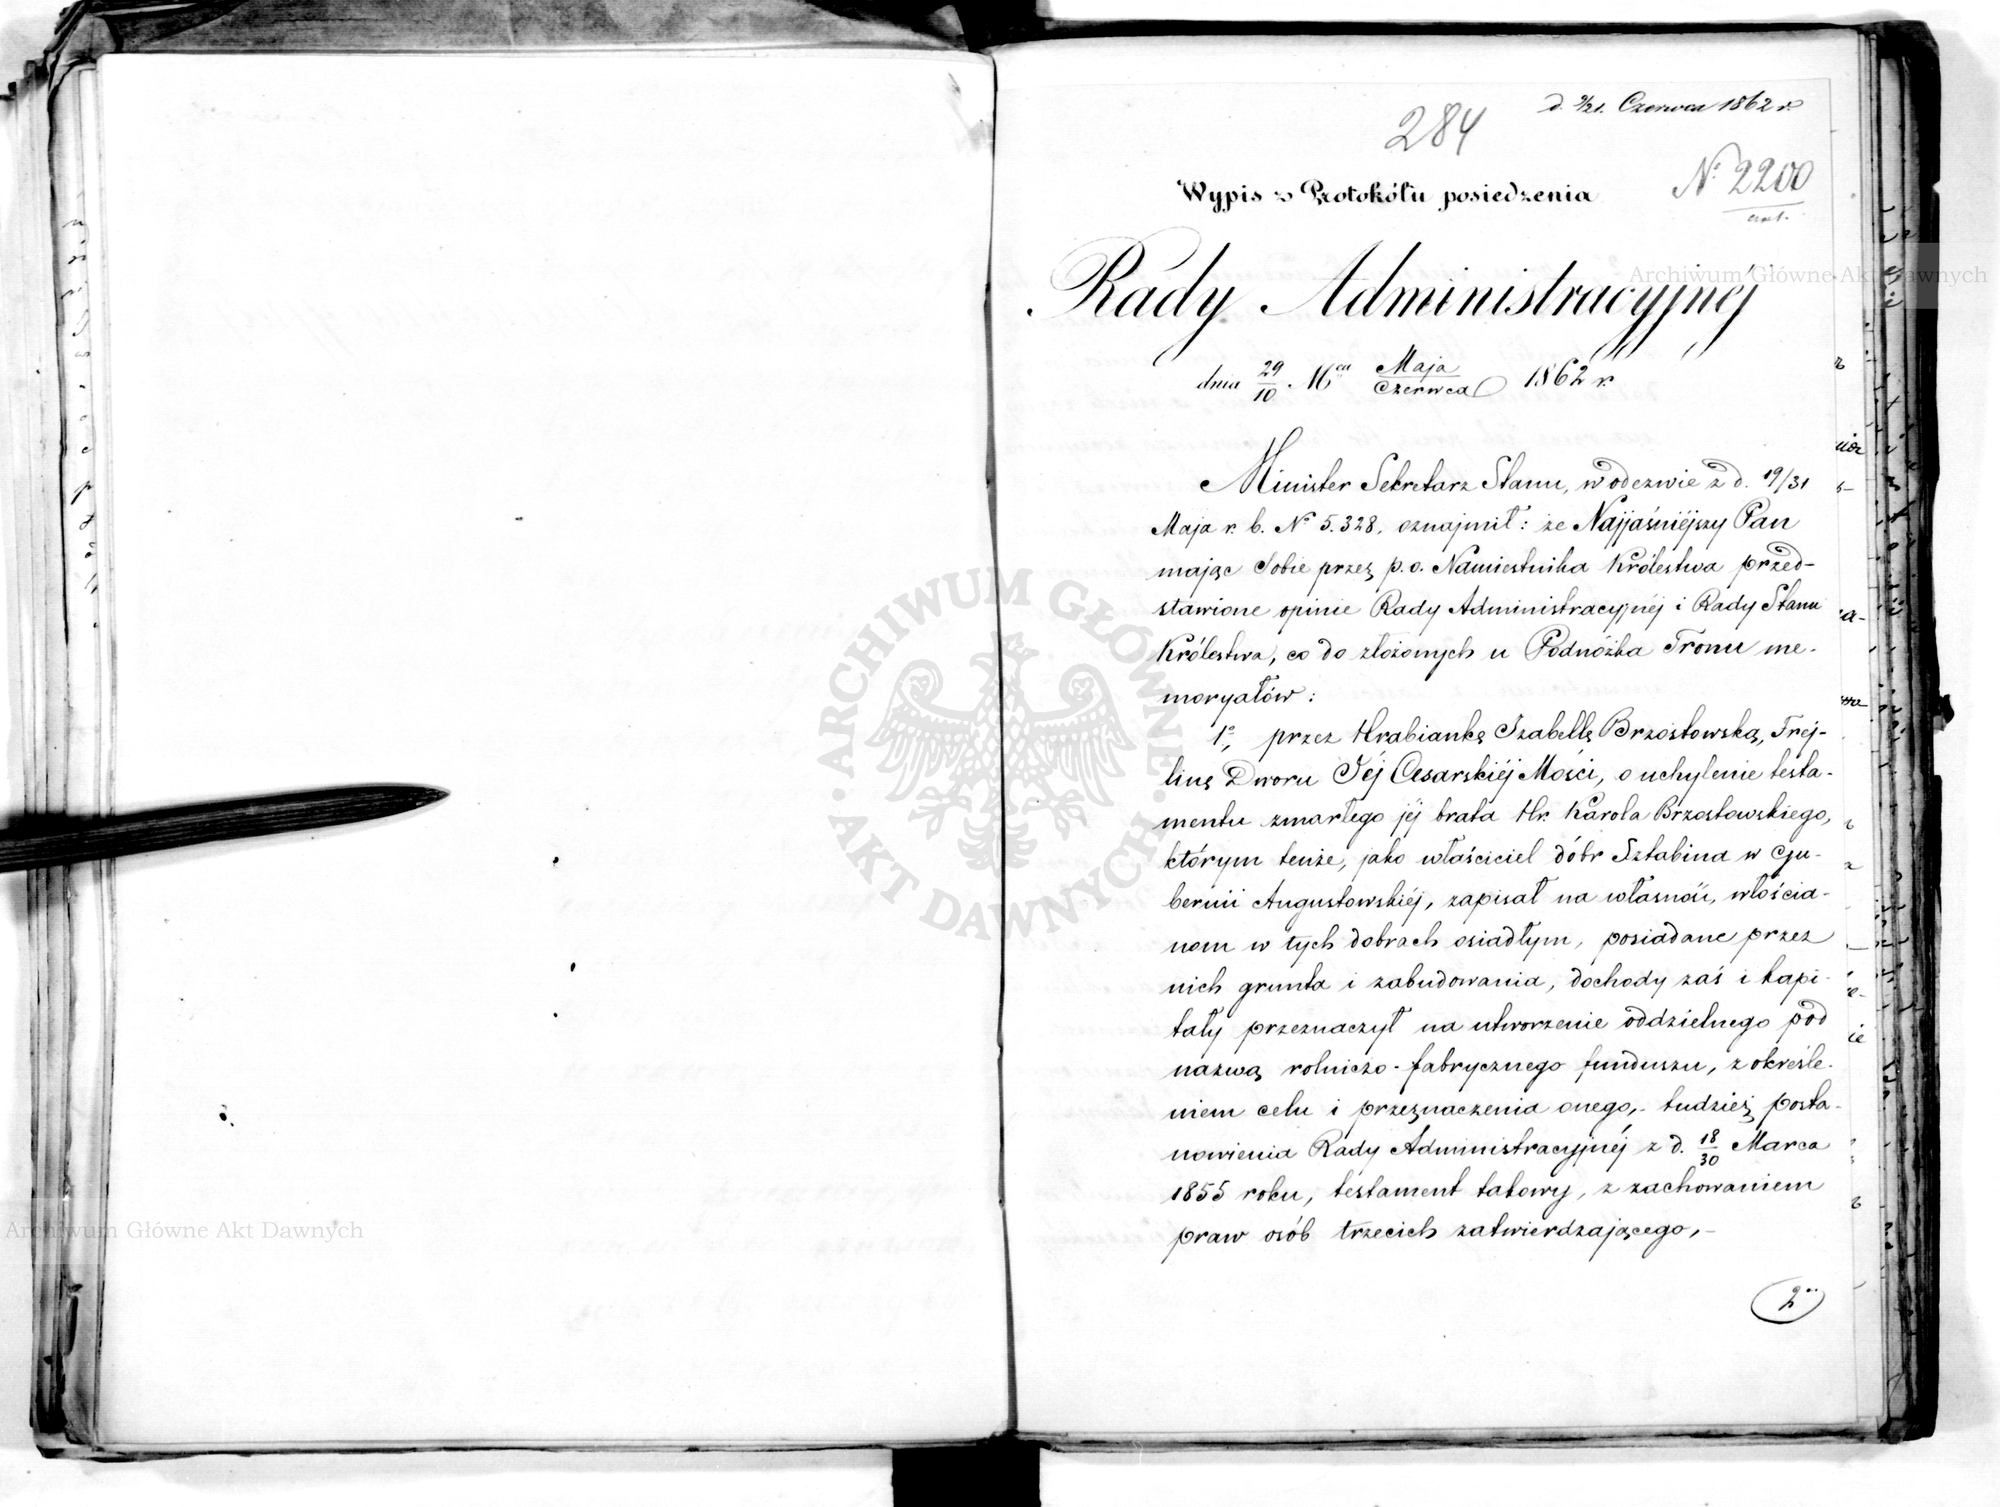 d. 9/21. Czerwca 1862 r.
284
Nº 2200
Wypis z Protokółu posiedzenia
Rady Administracyjnéj
dnia 29/10 Mca Maja/Czerwca 1862 r.
Minister Sekretarz Stanu, w odezwie z d. 19/31
Maja r. b. Nº 5.328. oznajmił: że Najjaśniéjszy Pan
mając Sobie przez p. o. Namiestnika Królestwa przed-
stawione opinie Rady Administracyjnéj i Rady Stanu
Królestwa, co do złożonych u Podnóżka Tronu me-
moryałów:
1º, przez Hrabiankę Izabellę Brzostowską, Frej-
linę Dworu Jéj Cesarskiéj Mości, o uchylenie testa-
mentu zmarłego jéj brata Hr. Karola Brzostowskiego,
którym tenże, jako właściciel dóbr Sztabina w Gu-
bernii Augustowskiéj, zapisał na własność, włościa-
nom w tych dobrach osiadłym, posiadane przez
nich grunta i zabudowania, dochody zaś i kapi-
tały przeznaczył na utworzenie oddzielnego pod
nazwą rolniczo-fabrycznego funduszu, z określe-
niem celu i przeznaczenia onego,- tudzież posta-
nowienia Rady Administracyjnéj z d. 18/30 Marca
1855 roku, testament takowy, z zachowaniem
praw osób trzecich zatwierdzającego,-
2º
Archiwum Główne Akt Dawnych
ARCHIWUM GŁÓWNE AKT DAWNYCH
Archiwum Główne Akt Dawnych